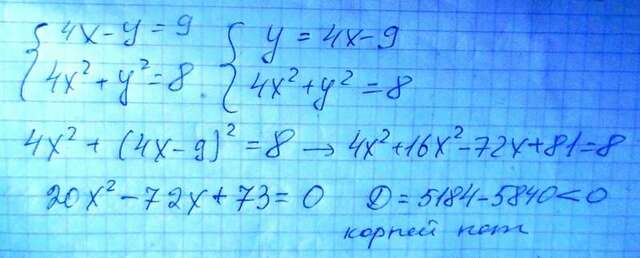 { 4x-y=9 { y=4x-9
{ 4x²+y²=8 { 4x²+y²=8
4x²+(4x-9)²=8 → 4x²+16x²-72x+81=8
20x²-72x+73=0 D=5184-5840<0
корней нет